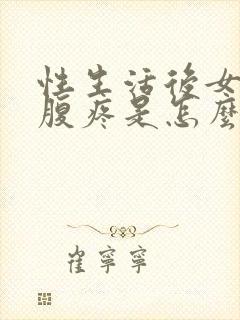 性生活後女
腹疼是怎麼
崔寧寧